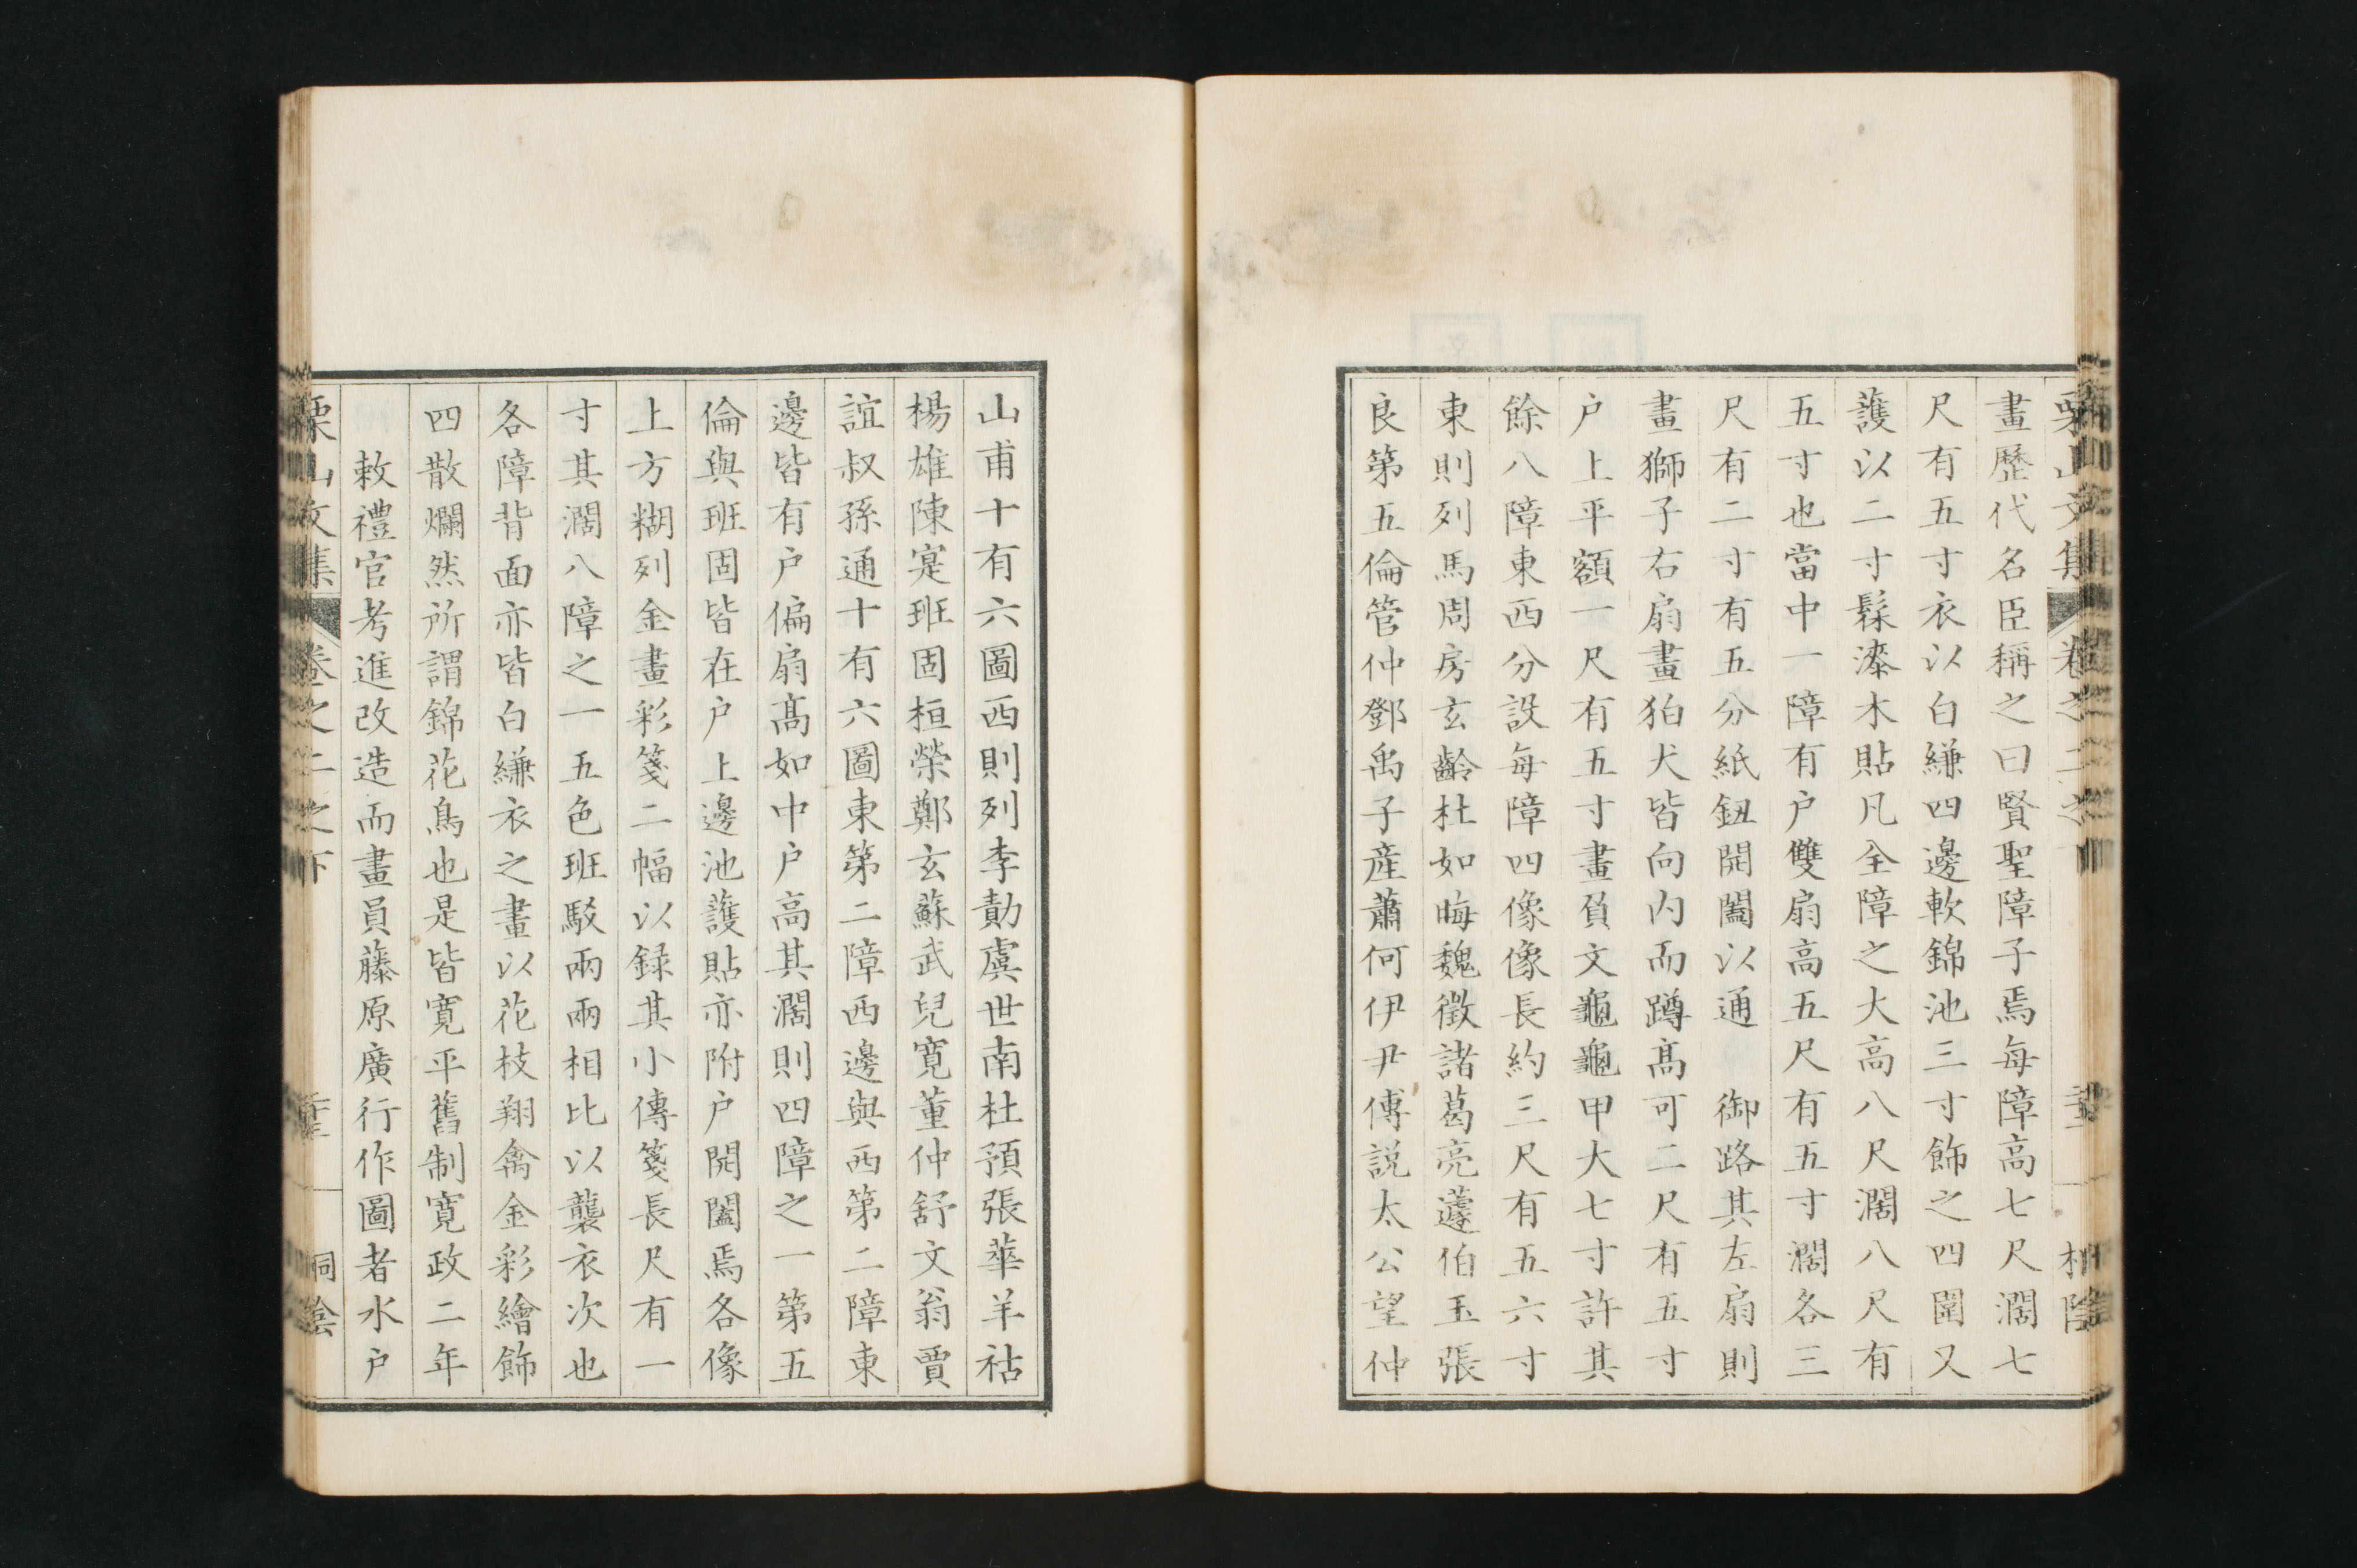 畫歷代名臣稱之曰賢聖障子焉每障高七尺濶七
尺有五寸衣以白縑四邊軟錦池三寸飾之四圍又
護以二寸髹漆木貼凡全障之大高八尺濶八尺有
五寸也當中一障有户雙扇高五尺有五寸濶各三
尺有二寸有五分紙鈕開闔以通　御路其左扇則
畫獅子右扇畫狛犬皆向内而蹲髙可二尺有五寸
户上平額一尺有五寸畫負文龜龜甲大七寸許其
餘八障東西分設每障四像像長約三尺有五六寸
東則列馬周房玄齡杜如晦魏徵諸葛亮蘧伯玉張
良第五倫管仲鄧禹子産蕭何伊尹傅説太公望仲
山甫十有六圖西則列李勣虞世南杜預張華羊祜
楊雄陳寔班固桓榮鄭玄蘇武兒寛董仲舒文翁賈
誼叔孫通十有六圖東第二障西邊與西第二障東
邊皆有户偏扇髙如中户高其濶則四障之一第五
倫與班固皆在户上邊池護貼亦附户開闔焉各像
上方糊列金畫彩箋二幅以録其小傳箋長尺有一
寸其濶八障之一五色班駁兩兩相比以襲衣次也
各障背面亦皆白縑衣之畫以花枝翔禽金彩繪飾
四散爛然所謂錦花鳥也是皆寛平舊制寛政二年
敕禮官考進改造而畫員藤原廣行作圖者水户
栗山文集
卷之二之下
桐陰